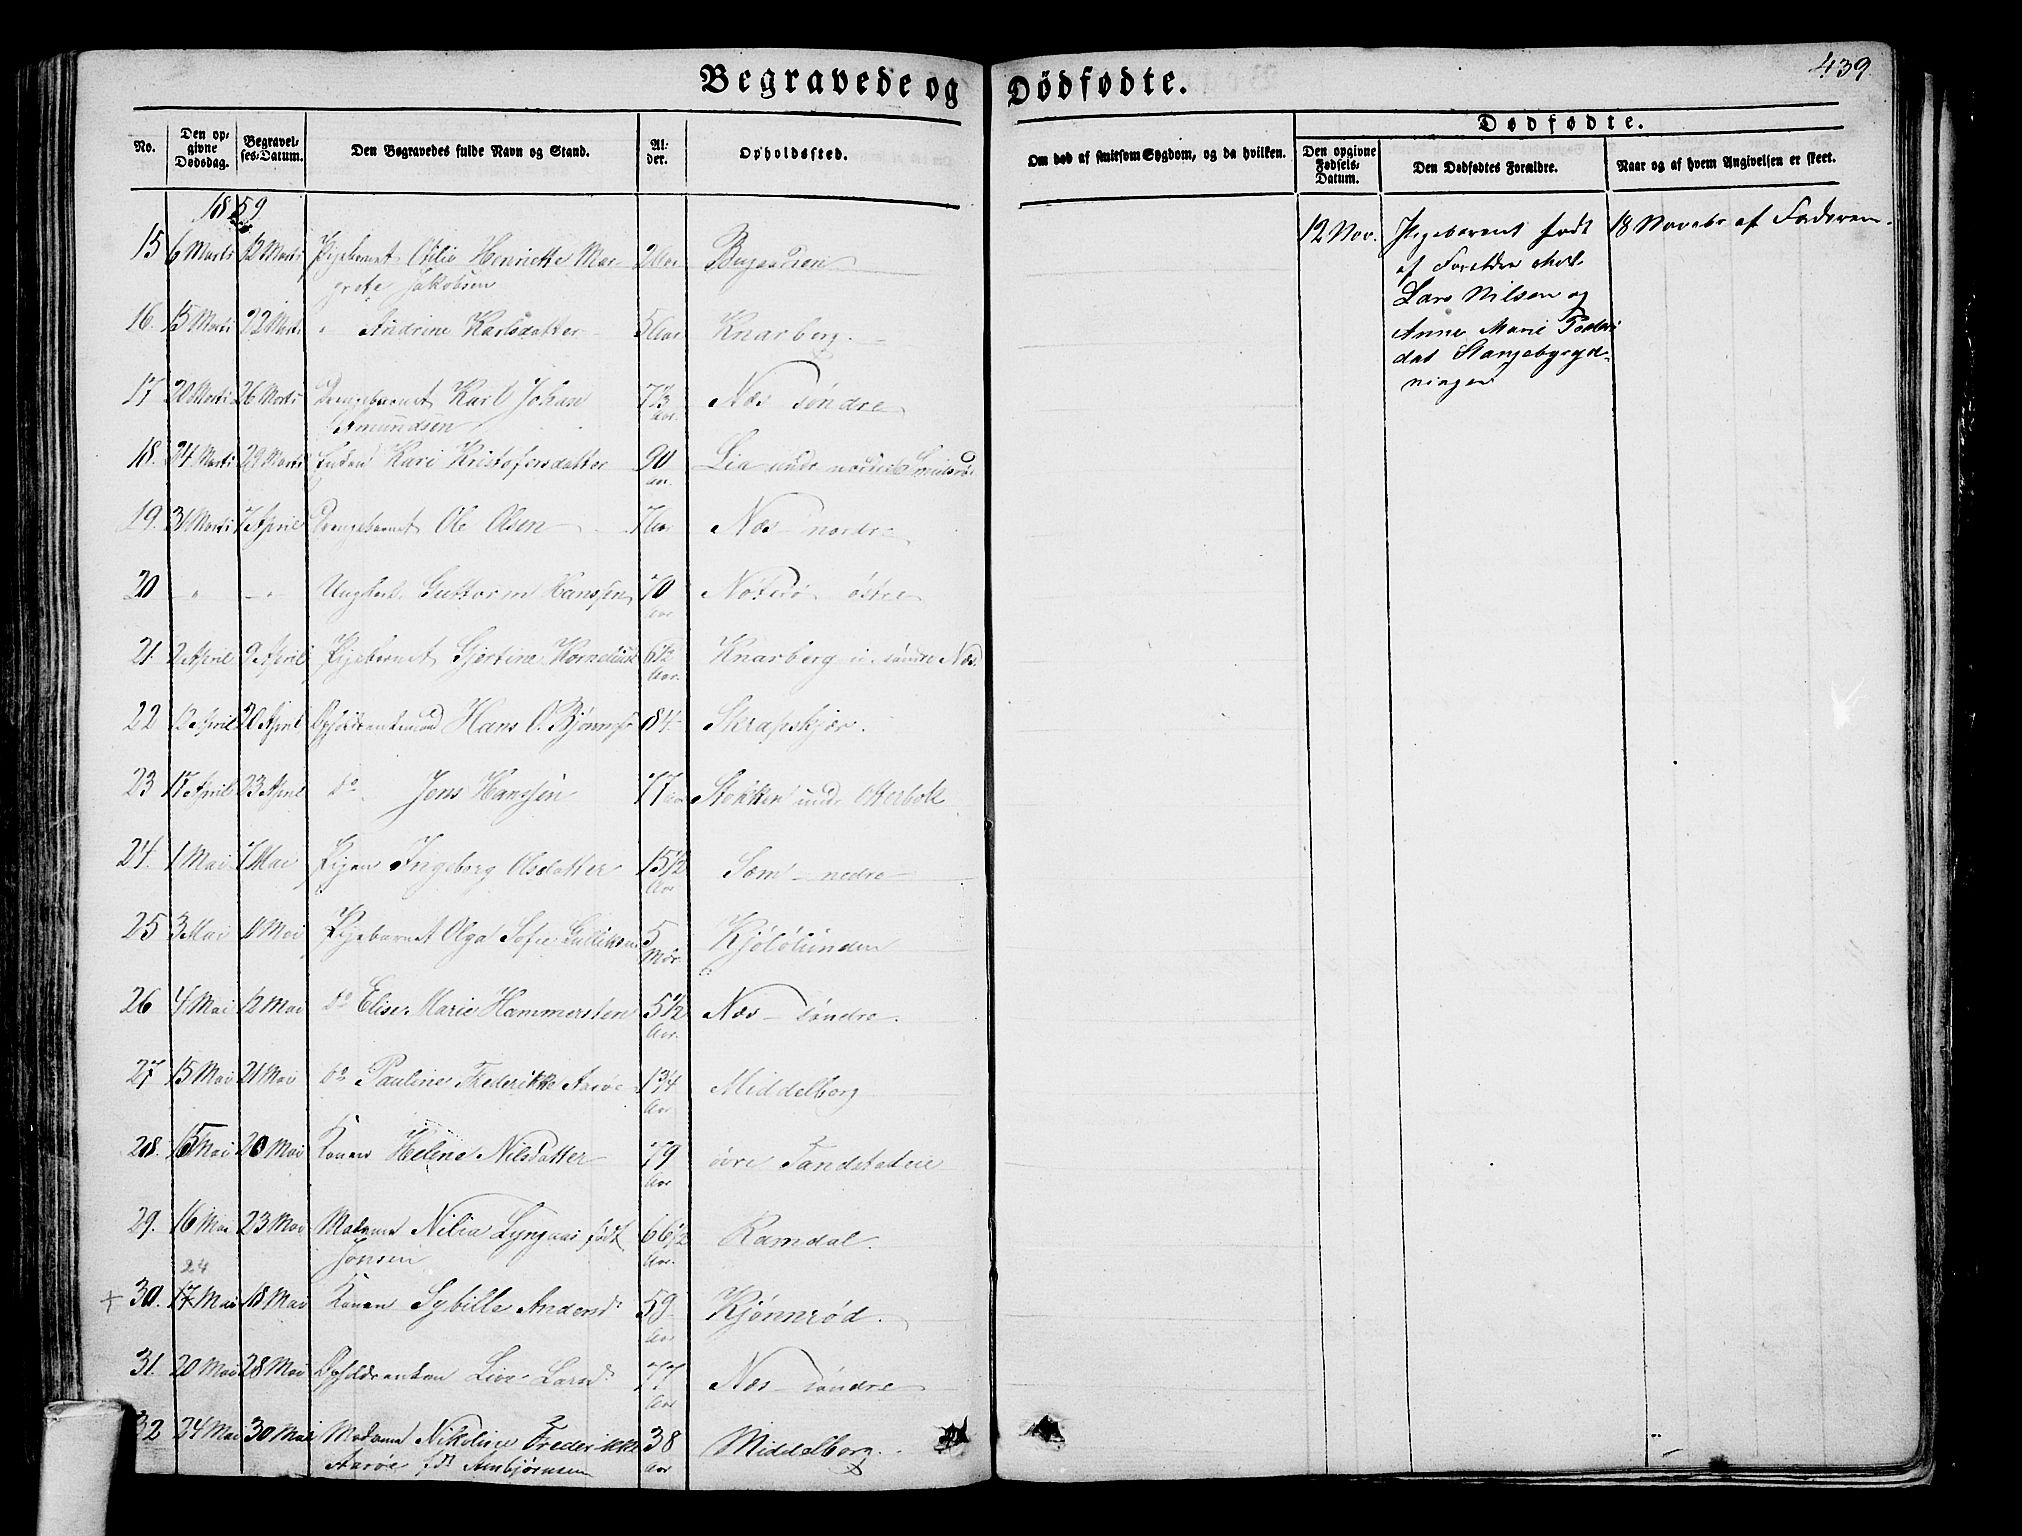 Begravede og Dødfødte.
439
No.
Den opgivne Dødsdag.
Begravelses-Datum.
Den Begravedes fulde Navn og Stand.
Alder.
Opholdssted.
Om død af smitsom Sygdom, og da hvilken.
Dødfødte.
Den opgivne Fødsels-Datum.
Den Dødfødtes Forældre.
Naar og af hvem Angivelsen er skeet.
1859
15 6 Marts 12 Marts Pigebarnet Otilie Henriette Mar- 2 Aar
grete Jakobsen
16. 15 Marts 22 Marts " Andrine Karlsdatter 5 Aar Knarberg.
17 20 Marts 26 Marts Drengebarnet Karl Johan 7 Aar. Næs søndre
Amundsen
18. 24 Marts 29 Marts Enken Kari Kristofersdatter 90 aar. Lia under nedre Smidsrø
19. 31 Marts 7 April Drengebarnet Ole Olsen 7 Aar Næs nordre
20 " " Ungkarl Guttorm Hanssen 70 aar Nøterø østre
21. 2 April 9 April Pigebarnet Gjertine Kornelius 6 1/2 Aar. Knarberg u. søndre Næs
22 12 April 20 April Opholdsrentemand Hans O. Bjørnss 84 Skrapskjær.
23 17 April 23 April do Jens Hanssen 77 aar Stokken under Otterbek
24. 1 Mai 7 Mai Pigen Ingeborg Olsdatter 15 1/2 Aar Sæm nedre
25 3 Mai 11 Mai Pigebarnet Olga Sofie Gulliksen 5 Mdr. Kjølølunden
26 4 Mai 12 Mai do Elise Marie Hammersten 5 1/2 Aar. Næs søndre.
27 15 Mai 21 Mai do Pauline Frederikke Aarøe 1 3/4 Aar Middelborg
28. 15 Mai 20 Mai Konen Helene Nilsdatter 79 Aar øvre Tandstadeie
29. 16 Mai 23 Mai Madame Nilia Lyngaas født 66 1/2 Aar. Ramdal.
Jonsen
24
+ 30. 17 Mai 18 Mai Konen Sybille Andersd. 59 Aar Kjønnerød.
31. 20 Mai 28 Mai Opholdsrenten Live Larsd. 77 Aar Næs søndre
32 24 Mai 30 Mai Madame Nikoline Frederikke 38 Aar Middelborg.
Aarøe fdt Ambjørnsen
12 Nov. Pigebarnet født 18 Novebr af Faderen.
af Foreldre
Lars Nilsen og
Anne Marie Peders
dat Stangebygyd-
ningen